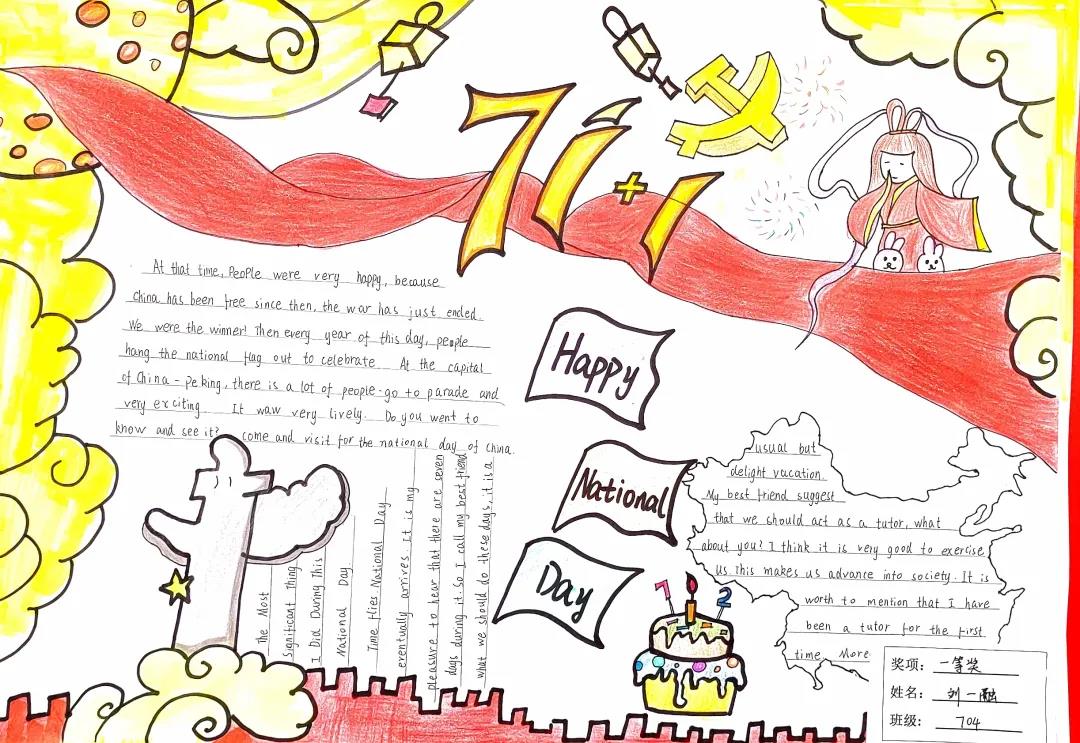 71+1
At that time, People were very happy, because
china has been free since then, the war has just ended.
We were the winner! Then every year of this day, people
hang the national flag out to celebrate At the capital
of China - pe king, there is a lot of people-go to parade and
very exciting It waw very lively. Do you went to
know and see it? come and visit for the national day of China.
Happy
National
Day
The Most
Significant Thing
I Did During This
National Day
Time flies National Day
eventually arrives it is my
pleasure to hear that there are seven
days during it. So I call my best friend
what we should do these days, it is a
usual but
delight vacation.
My best friend suggest
that we should act as a tutor, what
about you? I think it is very good to exercise
us. This makes us advance into society. It is
worth to mention that I have
been a tutor for the first
time. More
72
奖项: 一等奖
姓名: 刘一融
班级: 704